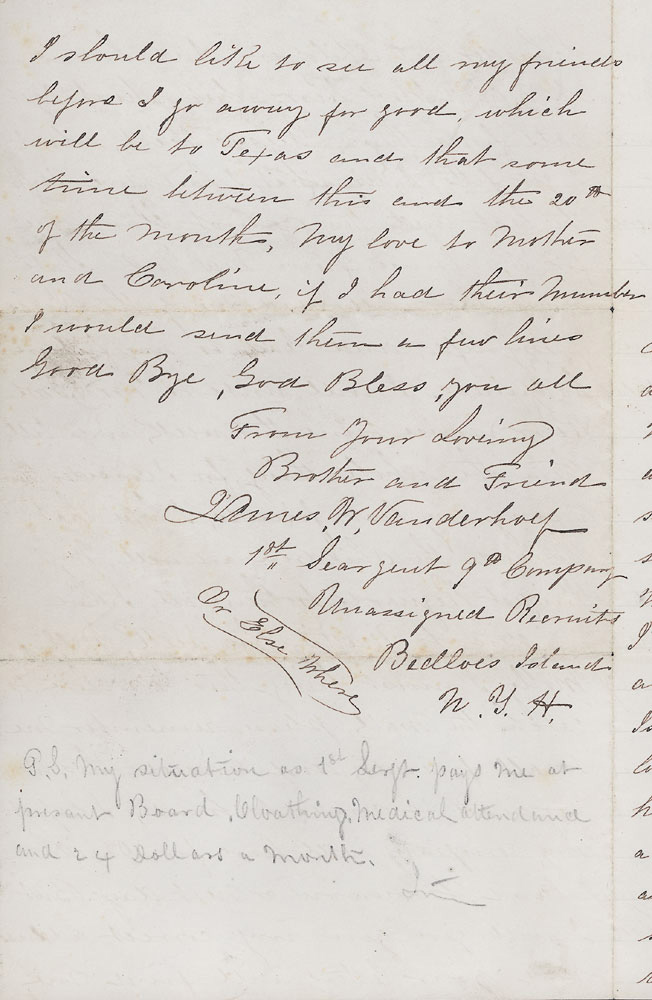 I should like to see all my friends
before I go away for good, which
will be to Texas and that some
time between this and the 20th
of the month, My love to Mother
and Caroline, if I had their Number
I would send them a few lines
Good Bye, God Bless, you all
From Your Loving
Brother and Friend
James, W, Vanderhoef
1st Seargent 9th Company
Unassigned Recruits
Bedloes Island
N. Y. H.
Or Else Where
P.S. My situation as 1st Sergt. pays me at
presant Board, Cloathing, Medical attendand
and 24 Dollars a Month.
Jim